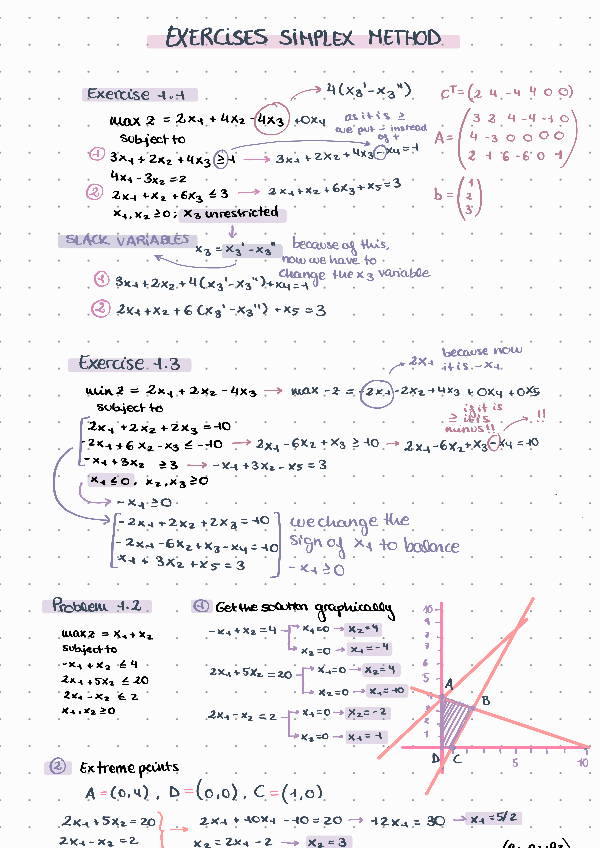 EXERCISES SIMPLEX METHOD
Exercise 1.1
4(x3'-x3'')
max z = 2x1 + 4x2 - 4x3 + 0x4
subject to
as it is ≥
we put - instead
of +
① 3x1 + 2x2 + 4x3 ≥ 1 → 3x1 + 2x2 + 4x3 - x4 = 1
4x1 - 3x2 = 2
② 2x1 + x2 + 6x3 ≤ 3 → 2x1 + x2 + 6x3 + x5 = 3
x1, x2 ≥ 0; x3 unrestricted
cT = (2 4 -4 4 0 0)
A = (3 2 4 -4 -1 0
4 -3 0 0 0 0
2 1 6 -6 0 1)
b = (1
2
3)
SLACK VARIABLES
x3 = x3' - x3''
because of this,
now we have to
change the x3 variable
① 3x1 + 2x2 + 4(x3' - x3'') + x4 = 1
② 2x1 + x2 + 6(x3' - x3'') + x5 = 3
Exercise 1.3
2x1
because now
it is -x1
min z = 2x1 + 2x2 - 4x3 → max -z = -2x1 - 2x2 + 4x3 + 0x4 + 0x5
subject to
if it is
≥ it is
minus!!
!!
2x1 + 2x2 + 2x3 = 10
-2x1 + 6x2 - x3 ≤ -10 → 2x1 - 6x2 + x3 ≥ 10 → 2x1 - 6x2 + x3 - x4 = 10
-x1 + 3x2 ≥ 3 → -x1 + 3x2 - x5 = 3
x1 ≤ 0, x2, x3 ≥ 0
-x1 ≥ 0
-2x1 + 2x2 + 2x3 = 10
-2x1 - 6x2 + x3 - x4 = 10
x1 + 3x2 + x5 = 3
we change the
sign of x1 to balance
-x1 ≥ 0
Problem 1.2
max z = x1 + x2
subject to
-x1 + x2 ≤ 4
2x1 + 5x2 ≤ 20
2x1 - x2 ≤ 2
x1, x2 ≥ 0
① Get the solution graphically
-x1 + x2 = 4
x1=0 → x2=4
x2=0 → x1=-4
2x1 + 5x2 = 20
x1=0 → x2=4
x2=0 → x1=10
2x1 - x2 = 2
x1=0 → x2=-2
x2=0 → x1=1
10
9
8
7
6
5
A
B
2
1
D
C
5
10
② Extreme points
A = (0,4), D = (0,0), C = (1,0)
2x1 + 5x2 = 20
2x1 - x2 = 2
2x1 + 10x1 - 10 = 20 → 12x1 = 30 → x1 = 5/2
x2 = 2x1 - 2 → x2 = 3